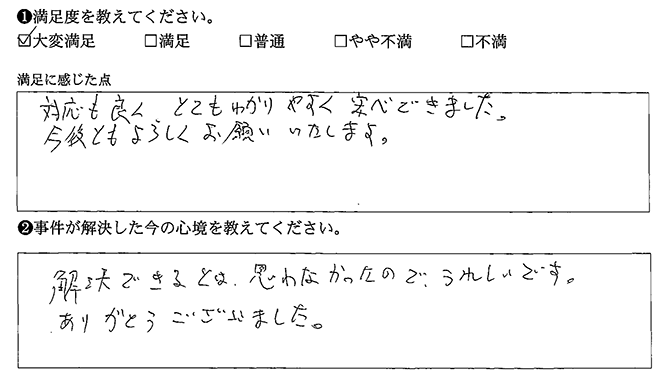 ❶満足度を教えてください。
☑大変満足 □満足 □普通 □やや不満 □不満
満足に感じた点
対応も良く、とてもわかりやすく安心できました。
今後ともよろしくお願いいたします。
❷事件が解決した今の心境を教えてください。
解決できるとは、思わなかったので、うれしいです。
ありがとうございました。